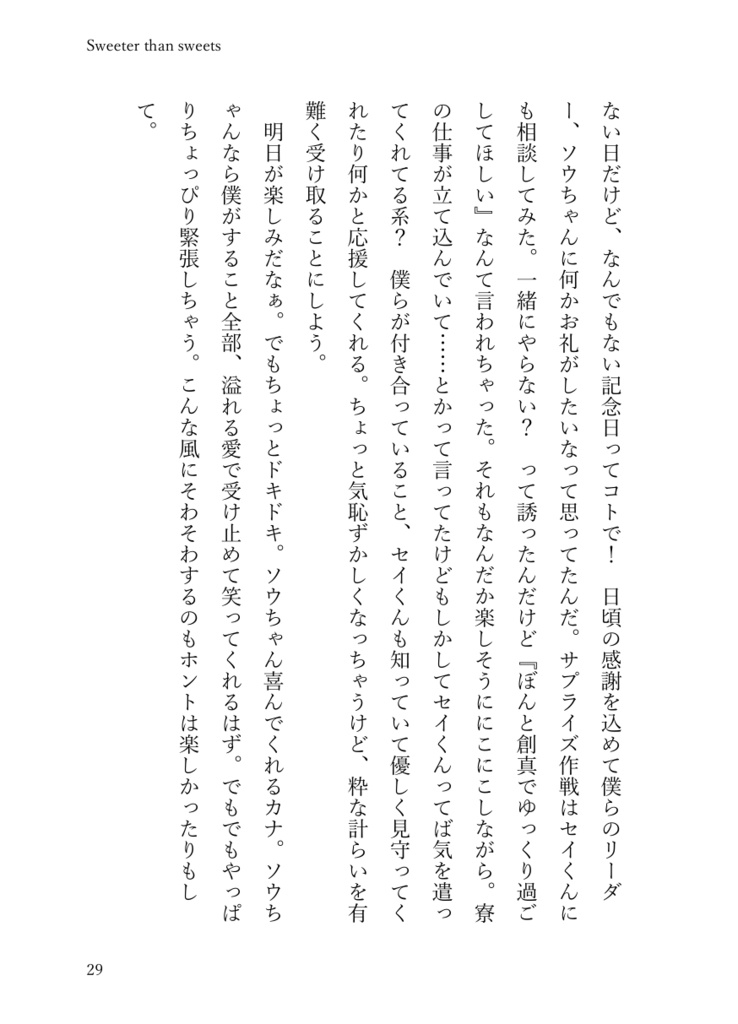 Sweeter than sweets
ない日だけど、なんでもない記念日ってコトで！　日頃の感謝を込めて僕らのリーダ
ー、ソウちゃんに何かお礼がしたいなって思ってたんだ。サプライズ作戦はセイくんに
も相談してみた。一緒にやらない？　って誘ったんだけど『ぼんと創真でゆっくり過ご
してほしい』なんて言われちゃった。それもなんだか楽しそうににこにこしながら。寮
の仕事が立て込んでいて……とかって言ってたけどもしかしてセイくんってば気を遣っ
てくれてる系？　僕らが付き合っていること、セイくんも知っていて優しく見守ってく
れたり何かと応援してくれる。ちょっと気恥ずかしくなっちゃうけど、粋な計らいを有
難く受け取ることにしよう。
　明日が楽しみだなぁ。でもちょっとドキドキ。ソウちゃん喜んでくれるカナ。ソウち
ゃんなら僕がすること全部、溢れる愛で受け止めて笑ってくれるはず。でもでもやっぱ
りちょっぴり緊張しちゃう。こんな風にそわそわするのもホントは楽しかったりもし
て。
29